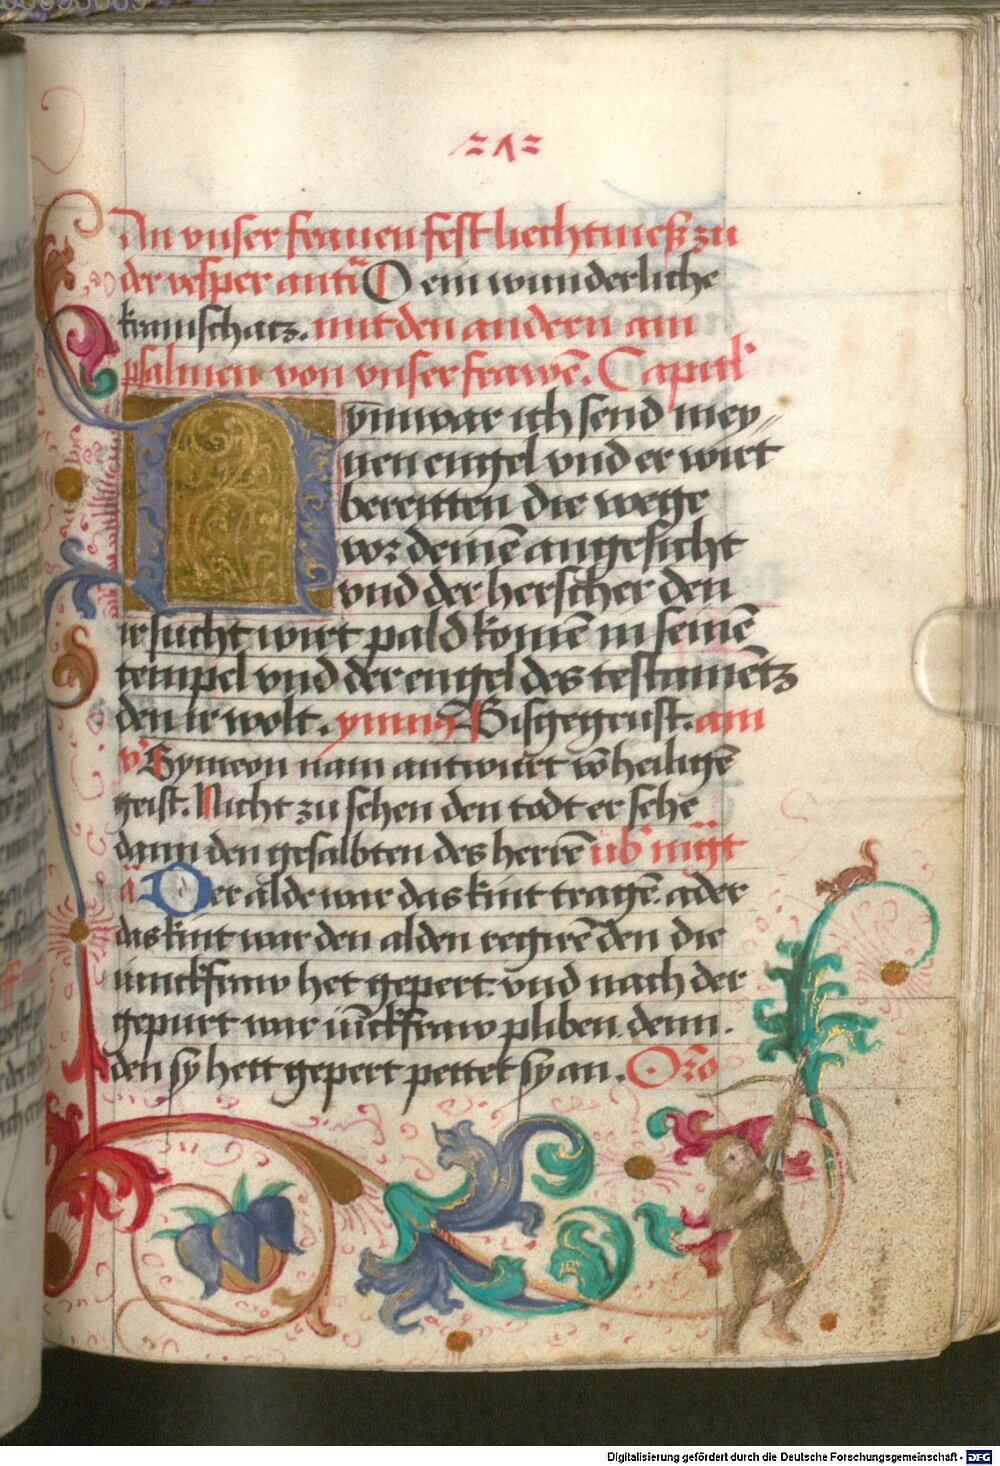 212
An vnser frauen fest liechtmeß zu
der vesper antī O ein wunderliche
kramschatz. mit den andern am
psalmen von vnser frawē. Capitl'
Nymwar ich send mey„
nen engel vnd er wirt
bereitten die wege
vor deinē angesicht
vnd der herscher den
ir sucht wirt pald komē in seinē
tempel vnd der engel des testamētz
den ir wolt. ymnꝰ Bisgegrust. am
v' Symeon nam antwurt vō heiligē
geist. Nicht zu sehen den todt er sehe
dann den gesalbten des herrē üb' mgt
ā Der alde war das kint tragē. ader
das kint war den alden regirē den die
iunckfraw het gepert. vnd nach der
gepurt war iūckfraw pliben. denn.
den sy hett gepert pettet sy an. Oro
Digitalisierung gefördert durch die Deutsche Forschungsgemeinschaft - DFG